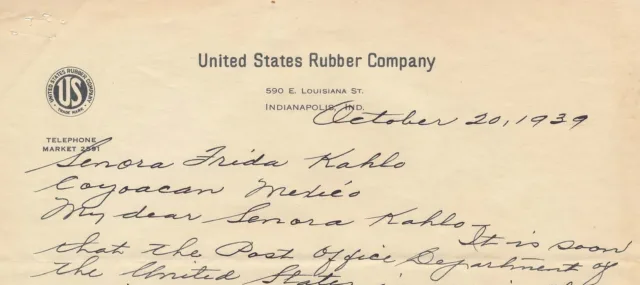 United States Rubber Company
590 E. Louisiana St.
Indianapolis, Ind.
UNITED STATES RUBBER COMPANY
US
TRADE MARK
TELEPHONE
MARKET 2581
October 20, 1939
Senora Frida Kahlo
Coyoacan Mexico
My dear Senora Kahlo-
It is soon
that the Post Office Department of
the United States